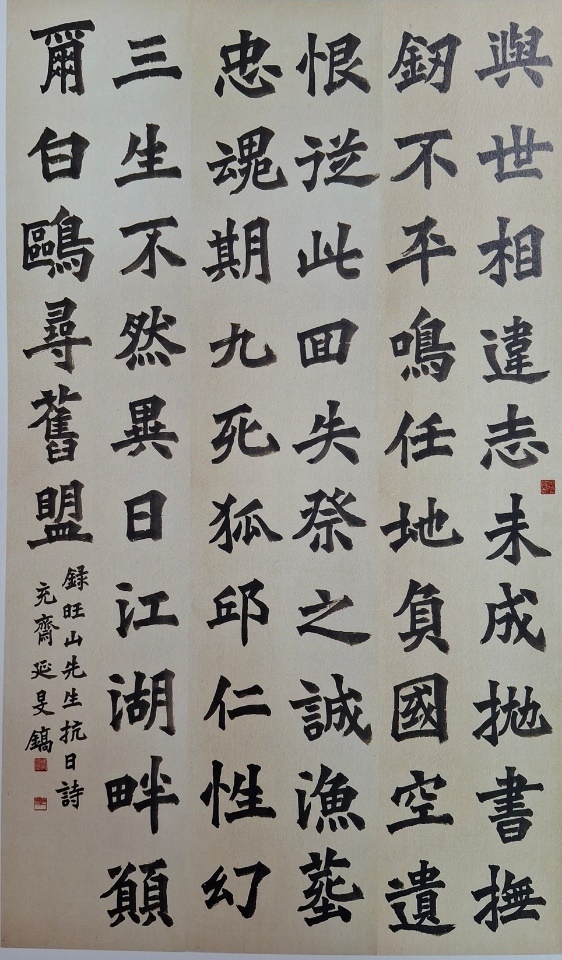 與世相違志未成抛書撫
釰不平鳴任地負國空遺
恨從此回失祭之誠漁塟
忠魂期九死狐邱仁性幻
三生不然異日江湖畔願
爾白鷗尋舊盟
録旺山先生抗日詩
充齋延旻鎬